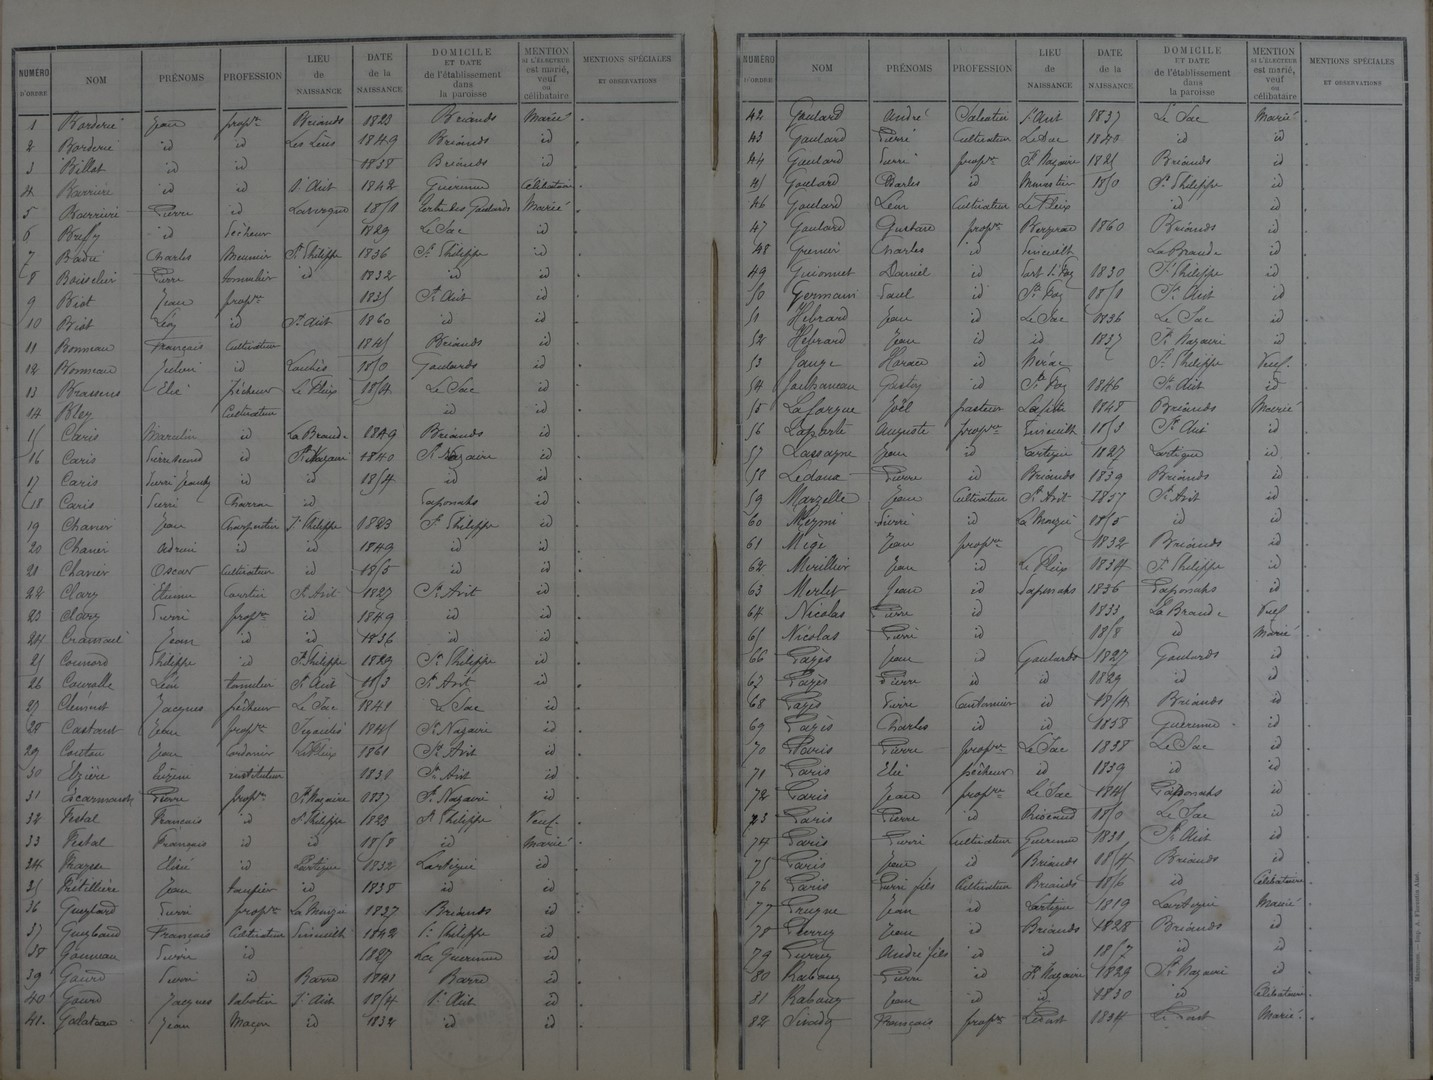 NUMÉRO D'ORDRE NOM PRÉNOMS PROFESSION LIEU de NAISSANCE DATE de la NAISSANCE DOMICILE ET DATE de l'établissement dans la paroisse MENTION SI L'ÉLECTEUR est marié, veuf ou célibataire MENTIONS SPÉCIALES ET OBSERVATIONS
1 Borderie Jean prop.re Briands 1823 Briands Marié
2 Borderie id id 1849 Briands id
3 Billot id id 1838 Briands id
4 Barrière id id St Avit 1842 Guerenne Célibataire
5 Barrière Pierre id Lavergne Tertre des Goulards Marié
6 id Pêcheur 1829 Le Sac id
7 Badie Charles Meunier St Philippe 1836 St Philippe id
8 Boisselier Pierre tonnelier id 1832 id id
9 Biot Jean prop.re 1835 St Avit id
10 Biot Léo id St Avit 1860 id id
11 Bonneau François Cultivateur 1845 Briands id
12 Bonneau id 1850 Goulards id
13 Brassens Elie Pêcheur Le Fleix 1854 Le Sac id
14 Bley Cultivateur id id
15 Caris id La Brande 1849 Briands id
16 Caris Pierre second id St Nazaire 1840 St Nazaire id
17 Caris id id 1854 id id
18 Caris Pierre Charron id Saponaks id
19 Chavier Jean Charpentier St Philippe 1823 St Philippe id
20 Chavier id id 1849 id id
21 Chavier Oscar Cultivateur id 1855 id id
22 Clary Etienne St Avit 1827 St Avit id
23 Clary Pierre prop.re id 1849 id id
24 Jean id id 1836 id id
25 Counord Philippe id St Philippe 1829 St Philippe id
26 Léon tonnelier St Avit 1853 St Avit id
27 Clément Jacques pêcheur Le Sac 1841 Le Sac id
28 Castant Jean prop.re 1845 St Nazaire id
29 Coutou Jean cordonnier Le Fleix 1861 St Avit id
30 Elzière Eugène instituteur 1831 St Avit id
31 Pierre prop.re St Nazaire 1837 St Nazaire id
32 Festal François id St Philippe 1823 St Philippe Veuf
33 Festal François id id 1858 id Marié
34 id Lartigue 1832 Lartigue id
35 Fétillière Jean id 1838 id id
36 Pierre prop.re 1837 Briands id
37 François Cultivateur 1842 St Philippe id
38 Gonneau Pierre id 1827 La Guerenne id
39 Gourd Pierre id Barre 1843 Barre id
40 Gourd Jacques Sabotier St Avit 1854 St Avit id
41 Galateau Jean Maçon id 1832 id id
NUMÉRO D'ORDRE NOM PRÉNOMS PROFESSION LIEU de NAISSANCE DATE de la NAISSANCE DOMICILE ET DATE de l'établissement dans la paroisse MENTION SI L'ÉLECTEUR est marié, veuf ou célibataire MENTIONS SPÉCIALES ET OBSERVATIONS
42 Goulard André St Avit 1837 Le Sac Marié
43 Goulard Pierre Cultivateur Le Sac 1840 id id
44 Goulard Pierre prop.re St Nazaire 1825 Briands id
45 Goulard Charles id Monestier 1850 St Philippe id
46 Goulard Léon Cultivateur Le Fleix id id
47 Goulard Gustave prop.re Bergerac 1860 Briands id
48 Grenier Charles id Fineuilh La Brande id
49 Guionnet Daniel id Port Ste Foy 1830 St Philippe id
50 Germain Paul id Ste Foy 1851 St Avit id
51 Hébrard Jean id Le Sac 1836 Le Sac id
52 Hébrard Jean id id 1837 St Nazaire id
53 Horace id Nérac St Philippe Veuf
54 Jouhaneau id Ste Foy 1846 St Avit id
55 Laforgue Joël pasteur Lafitte 1848 Briands Marié
56 Laporte Auguste prop.re Fineuilh 1853 St Avit id
57 Lassagne Jean id Lartigue 1827 Lartigue id
58 Ledoux Pierre id Briands 1839 Briands id
59 Marzelle Jean Cultivateur St Avit 1857 St Avit id
60 Meymi Pierre id 1855 id id
61 Mège Jean prop.re 1832 Briands id
62 Merillier Jean id Le Fleix 1834 St Philippe id
63 Merlet Jean id Saponaks 1836 Saponaks id
64 Nicolas Pierre id 1833 La Brande Veuf
65 Nicolas Pierre id 1858 id Marié
66 Pazès Jean id Goulards 1827 Goulards id
67 Pazès Pierre id id 1829 id id
68 Pazès Pierre Cantonnier id 1854 Briands id
69 Pazès Charles id id 1858 Guerenne id
70 Paris Pierre prop.re Le Sac 1838 Le Sac id
71 Paris Elie pêcheur id 1839 id id
72 Paris Jean prop.re Le Sac 1845 Saponaks id
73 Paris Pierre id 1850 Le Sac id
74 Paris Pierre Cultivateur Guerenne 1831 St Avit id
75 Paris Jean id Briands 1854 Briands id
76 Paris Pierre fils Cultivateur Briands 1856 id Célibataire
77 Prugne Jean id Lartigue 1819 Lartigue Marié
78 Perrey Jean id Briands 1828 Briands id
79 Perrey André fils id id 1857 id id
80 Rabouy Pierre id St Nazaire 1829 St Nazaire id
81 Rabouy Jean id id 1830 id Célibataire
82 François prop.re Le Port 1834 Le Port Marié